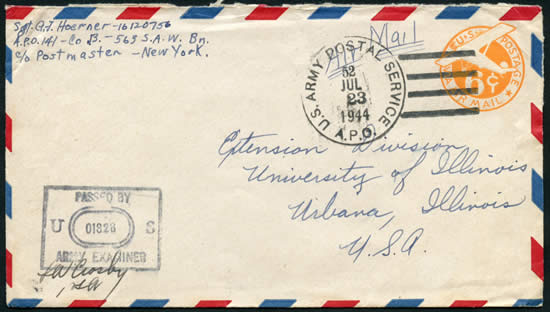 Sgt. G.F. Hoerner-16120756
A.P.O. 141-Co B.-563 S.A.W. Bn.
c/o Postmaster-New York.
Air Mail
U.S. ARMY POSTAL SERVICE
52
JUL
23
1944
A.P.O.
U.S. POSTAGE
6¢
AIR MAIL
Extension Division
University of Illinois
Urbana, Illinois
U.S.A.
PASSED BY
U 01828 S
ARMY EXAMINER
Crosby